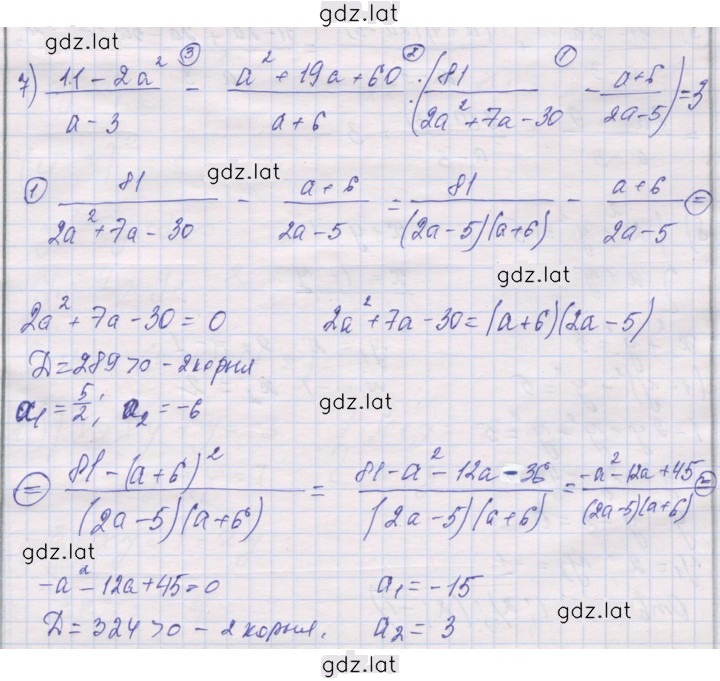 gdz.lat
gdz.lat
7) (11 - 2a²)/(a - 3) ③ - (a² + 19a + 60)/(a + 6) ② : (81/(2a² + 7a - 30) ① - (a + 6)/(2a - 5)) = 3
gdz.lat
① 81/(2a² + 7a - 30) - (a + 6)/(2a - 5) = 81/((2a - 5)(a + 6)) - (a + 6)/(2a - 5) ⊜
gdz.lat
2a² + 7a - 30 = 0 2a² + 7a - 30 = (a + 6)(2a - 5)
Д = 289 > 0 - 2 корня
a₁ = 5/2; a₂ = -6
gdz.lat
⊜ (81 - (a + 6)²)/((2a - 5)(a + 6)) = (81 - a² - 12a - 36)/((2a - 5)(a + 6)) = (-a² - 12a + 45)/((2a - 5)(a + 6)) ⊜
gdz.lat
-a² - 12a + 45 = 0 a₁ = -15
gdz.lat
Д = 324 > 0 - 2 корня. a₂ = 3
gdz.lat